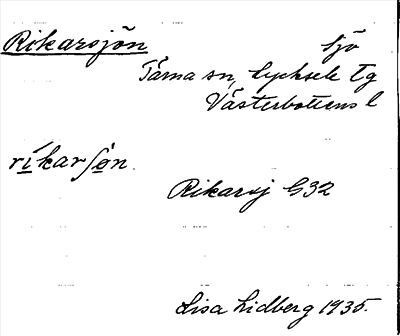 Rikarsjön sjö
Tärna sn, Lycksele tg
Västerbottens l
ríkarʃø̀n.
Rikarsj G32
Lisa Lidberg 1935.